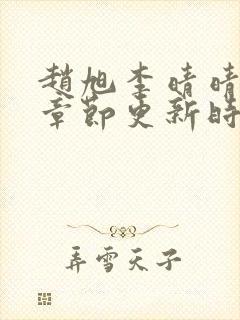 趙旭李晴晴
章節更新時
弄雪天子